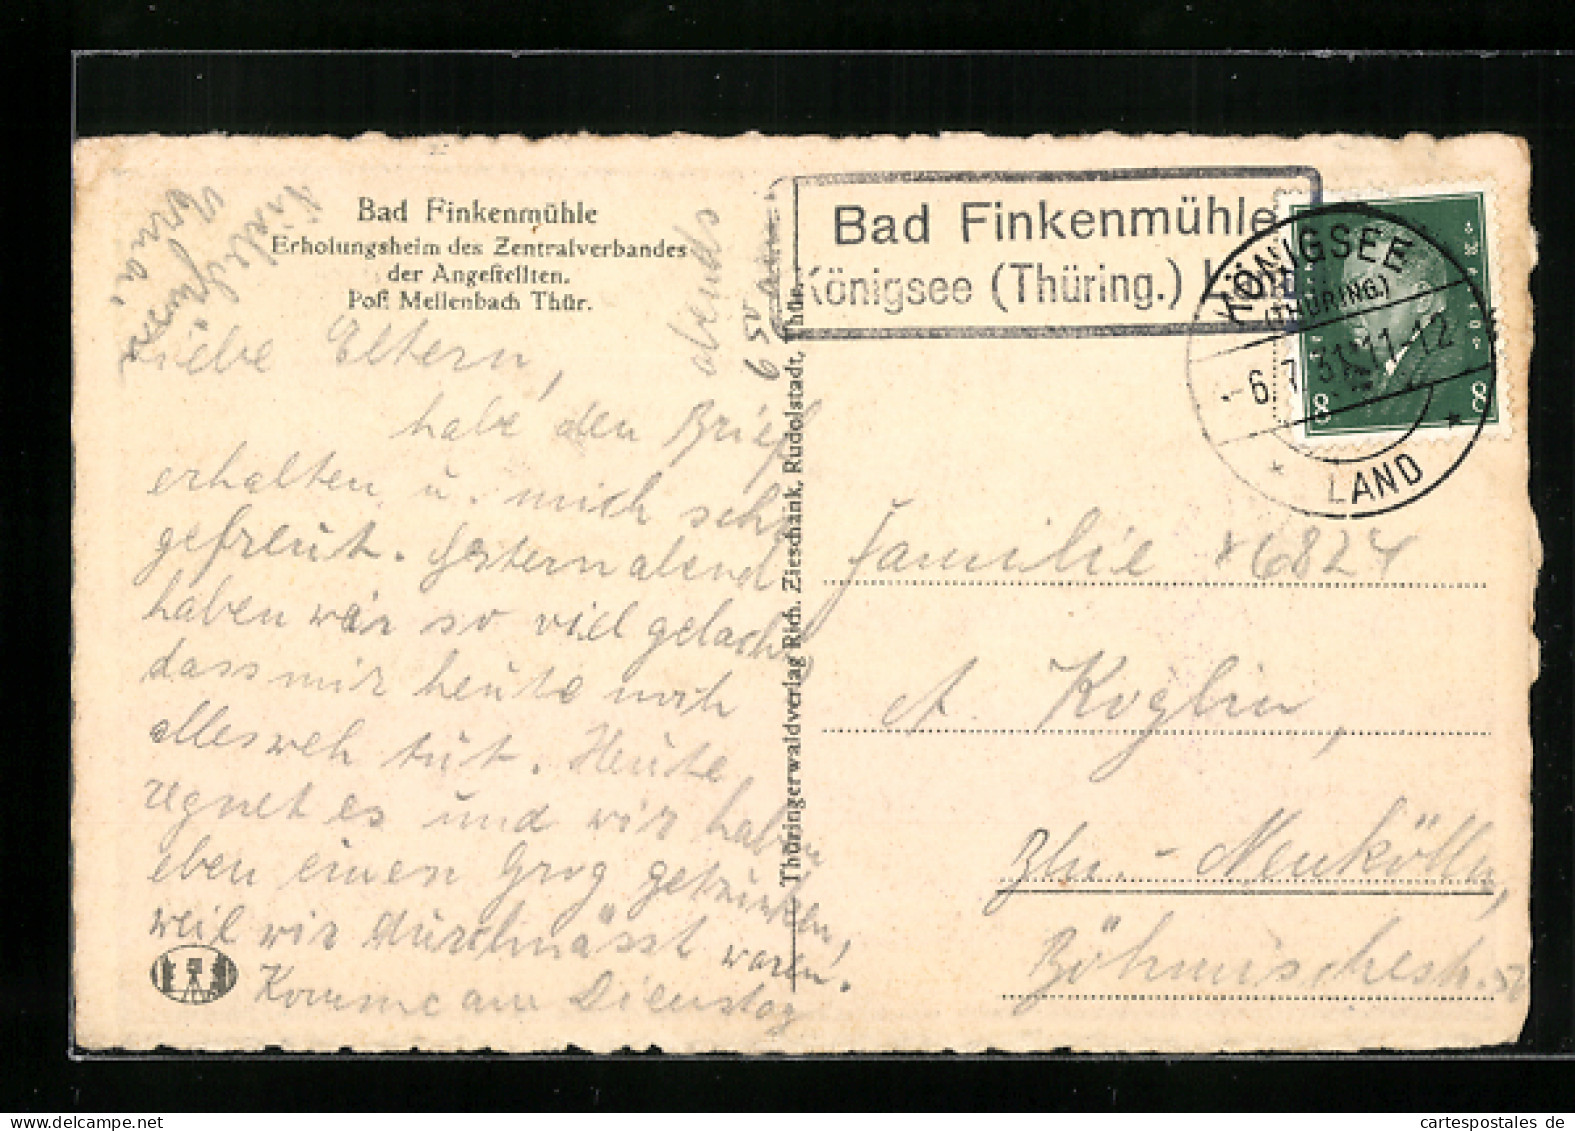 Bad Finkenmühle
Erholungsheim des Zentralverbandes
der Angestellten.
Post Mellenbach Thür.
Liebe Eltern,
habe den Brief
erhalten u. mich sehr
gefreut. Gestern abend
haben wir so viel gelacht,
dass mir heute noch
alles weh tut. Heute
regnet es und wir haben
eben einen Grog getrunken,
weil wir durchnässt waren.
Komme am Dienstag
abends
9⁵⁹
an.
Viele Grüsse
Erna.
Thüringerwaldverlag Rich. Zieschank, Rudolstadt, Thür.
Bad Finkenmühle
Königsee (Thüring.) Land
KÖNIGSEE
(THÜRING.)
-6.7.31.11-12
LAND
8 8
Familie *6824
A. Koglin,
Bln.-Neukölln,
Böhmischestr.
cartespostales.de